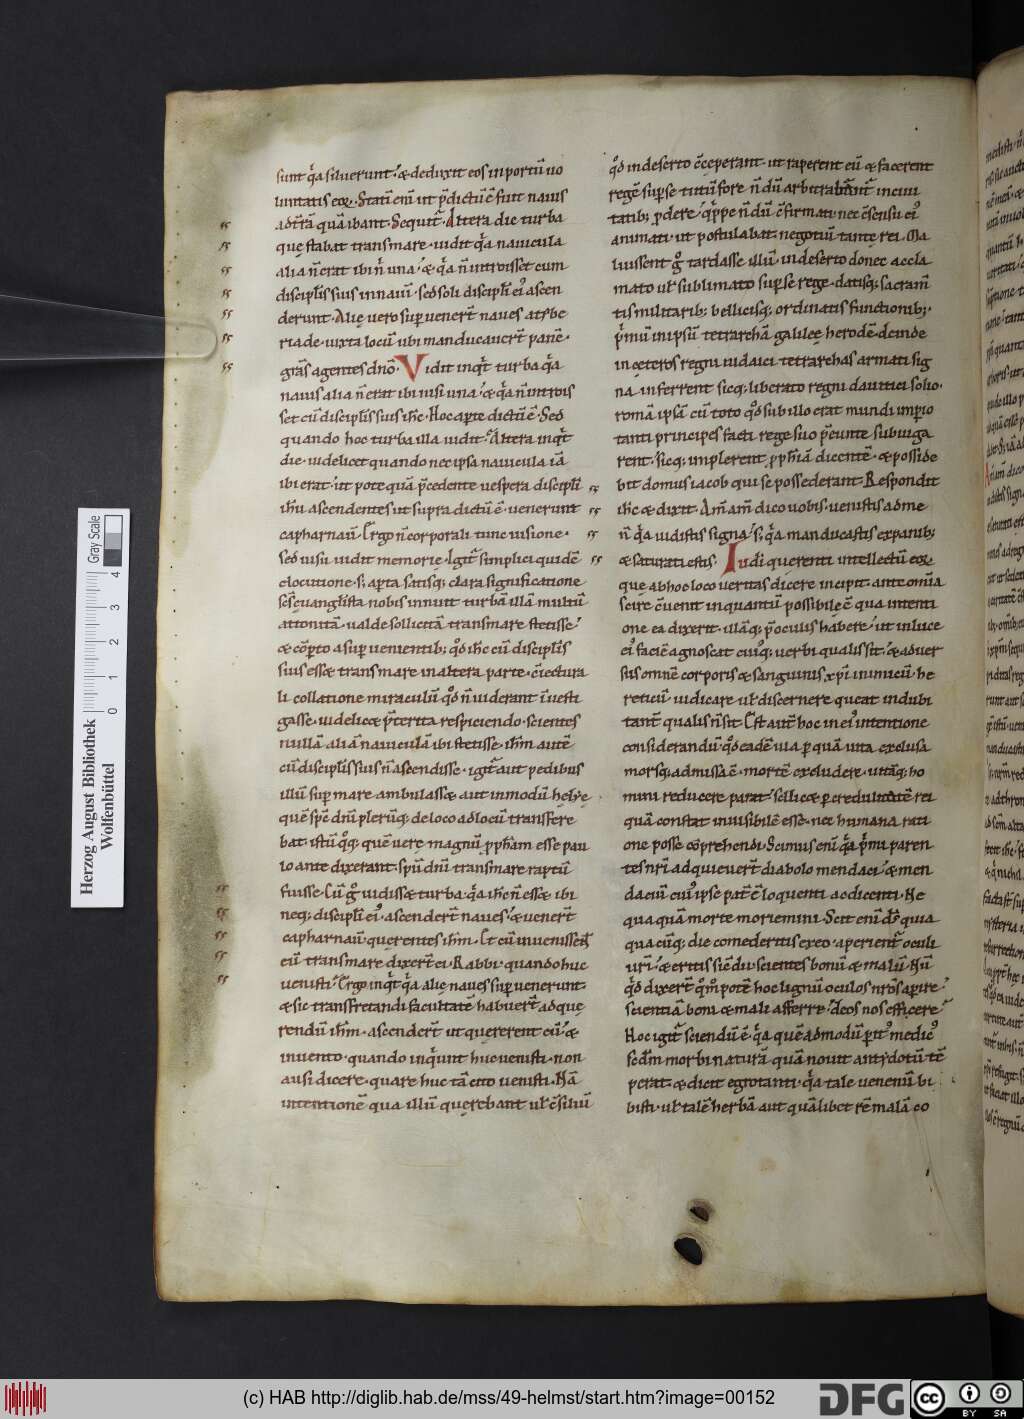 sunt q̄a siluerunt. & deduxit eos in portū uo
luntatis eoꝝ. Statī enī ut p̄dictū ē fuit nauis
ad t̄rā quā ibant. Sequit̄. Altera die turba
quę stabat trans mare. uidit q̄a nauicula
alia n̄ erat ibi n̄ una. & q̄a n̄ introisset cum
discipl̄is suis in nauī. sed soli discipl̄i ei⁹ ascen
derunt. Alię uero superuener̄t naues a tybe
riade. iuxta locū ubi manducauer̄t panē.
gr̄as agentes dn̄o. Vidit inqt̄ turba q̄a
nauis alia n̄ erat ibi nisi una. & q̄a n̄ introis
set cū discipl̄is suis ih̄c. Hoc aperte dictū ē. Sed
quando hoc turba illa uidit. Altera inqt̄
die. uidelicet quando nec ipsa nauicula iā
ibi erat. ut pote quā p̄cedente uespera discipl̄i
ih̄u ascendentes ut supra dictū ē. uenerunt
capharnaū. Ergo n̄ corporali tunc uisione.
sed uisu uidit memorie. Igit̄ simplici quidē
elocutione. s; apta satisq; clara significatione
sc̄s euangl̄ista nobis innuit turbā illā multū
attonitā. ualde sollicitā trans mare stetisse.
& cōpto a superuenientib; qđ ih̄c cū discipl̄is
suis ess& trans mare in altera parte. c̄iectura
li collatione miraculū qđ n̄ uiderant īuesti
gasse. uidelic& p̄terita respiciendo. scientes
nullā aliā nauiculā ibi stetisse. ih̄m autē
cū discipl̄is suis n̄ ascendisse. igit̄ aut pedibus
illū sup mare ambulass&. aut in modū helyę
quē sp̄c dn̄i plerūq; de loco ad locū transfere
bat. istū q̊q; quē uere magnū pph̄am esse pau
lo ante dixerant. sp̄m dn̄i trans mare raptū
fuisse. Cū ḡ uidiss& turba. q̄a ih̄c n̄ ess& ibi
neq; discipl̄i ei⁹. ascender̄t naues. & uener̄t
capharnaū querentes ih̄m. Et cū inuenissent
eū trans mare dixer̄t ei. Rabbi. quando huc
uenisti. Ergo inqt̄ q̄a alię naues superuenerunt.
& sic transfretandi facultatē habuer̄t ad que
rendū ih̄m. ascender̄t ut quererent eū. &
inuento. quando inq̄unt huc uenisti. non
ausi dicere. quare huc tā cito uenisti. Nā
intentionē qua illū querebant ul̄ c̄siliū
qđ in deserto c̄ceperant. ut raperent eū & facerent
regē super se tutū fore n̄ dū arbitrabant̄ in ciui
tatib; pdere. q̄ppe n̄ dū c̄firmati nec c̄sensu ei⁹
animati. ut postulabat negotiū tantę rei. Ma
luissent ḡ tardasse illū in deserto donec accla
mato ul̄ sublimato super se rege. datisq; sacram̄
tis militarib; bellicisq; ordinatis functionib;.
p̄mū in ipsū tetrarchā galileę herodē. deinde
in ceteros regni iudaici tetrarchas armati sig
na inferrent. sicq; liberato regni dauitici solio.
romā ipsā cū toto qđ sub illo erat mundi imperio
tanti principes facti rege suo p̄eunte subiuga
rent. sicq; implerent pph̄iā dicentē. & posside
bit domus iacob qui se possederant. Respondit
ih̄c & dixit. Am̄ am̄ dico uobis. uenistis ad me
n̄ q̄a uidistis signa. s; q̄a manducastis ex panib;
& saturati estis. Iudi querenti intellectū eoꝝ
que ab hoc loco ueritas dicere incipit. ante omīa
scire c̄uenit in quantū possibile ē qua intenti
one ea dixerit. illāq; p̄ oculis habere. ut in luce
ei⁹ faciē agnoscat cui⁹q; uerbi qualis sit. & aduer
sus omnē corporis & sanguinis xp̄i inimicū. he
reticū iudicare ul̄ discernere queat indubi
tant̄ qualis n̄ sit. Est aut̄ hoc in ei⁹ intentione
considerandū. qđ eadē uia p quā uita exclusa
morsq; admissa ē. mortē excludere. uitāq; ho
mini reducere parat. scilic& p credulitatē rei
quā constat inuisibilē esse. nec humana rati
one posse cōprehendi. Scimus enī q̄a p̄mi paren
tes nr̄i adquieuer̄t diabolo mendaci. & men
daciū cui⁹ ipse pat̄ ē loquenti ac dicenti. Ne
quaquā morte moriemini. Scit enī ds̄ quia
quacūq; die comederitis ex eo. aperient̄ oculi
ur̄i. & eritis sic dii. scientes bonū & malū. Nū
qđ dixer̄t q̊m̊ potē hoc lignū oculos nr̄os aperire.
scientiā boni & mali afferre. deos nos efficere.
Hoc igit̄ sciendū ē. q̄a quē admodū perit⁹ medic⁹
scđm morbi naturā quā nouit antydotū tē
perat. & dicit egrotanti. q̄a tale uenenū bi
bisti. ul̄ talē herbā aut quālibet rē malā co
Herzog August Bibliothek
Wolfenbüttel
Gray Scale
0 1 2 3 4
(c) HAB http://diglib.hab.de/mss/49-helmst/start.htm?image=00152
DFG
cc BY SA